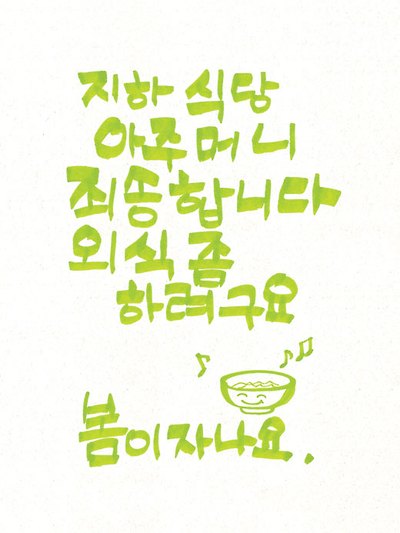 지하 식당
아주머니
죄송합니다
외식 좀
하려구요
봄이자나요.